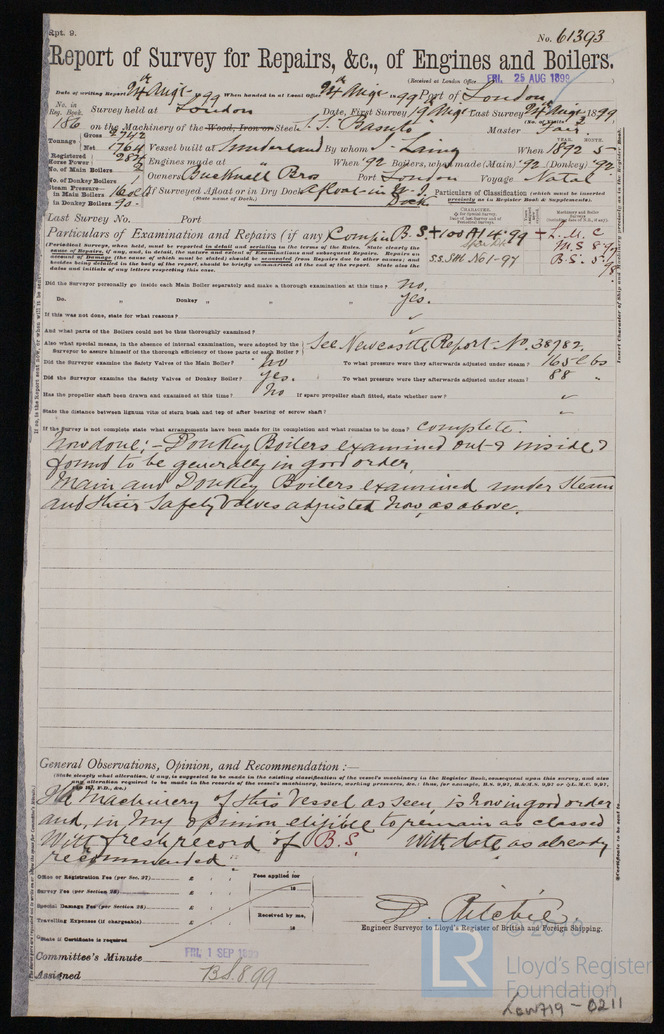 Rpt. 9.
No. 61393
Report of Survey for Repairs, &c., of Engines and Boilers.
(Received at London Office FRI. 25 AUG 1899)
Date of writing Report 24th Augt 1899 When handed in at Local Office 24th Augt 1899 Port of London
No. in Reg. Book. Survey held at London Date, First Survey 19th Augt Last Survey 24th Augt 1899
(No. of Visits 2)
186 on the Machinery of the Wood, Iron or Steel S.S. Basuto Master Fair.
Tonnage Gross 2742
Net 1764 Vessel built at Sunderland By whom J. Laing When 1892 5
Registered Horse Power 287 Engines made at " When '92 Boilers, when made (Main) '92 (Donkey) '92
No. of Main Boilers 2 Owners Bucknall Bros Port London Voyage Natal
No. of Donkey Boilers 1
Steam Pressure in Main Boilers 160 lbs If Surveyed Afloat or in Dry Dock Afloat in
in Donkey Boilers 90. (State name of Dock.) Dock
Particulars of Classification (which must be inserted precisely as in Register Book & Supplements).
Last Survey No. Port
Particulars of Examination and Repairs (if any) B.S. +100A1 4.99 +L.M.C
M.S 8.
S.S. No1-97 B.S. 5.98
(Periodical Surveys, when held, must be reported in detail and seriatim in the terms of the Rules. State clearly the cause of Repairs, if any, and, in detail, the nature and extent of Examinations and subsequent Repairs. Repairs on account of Damage (the cause of which must be stated) should be separated from Repairs due to other causes; and besides being detailed in the body of the report, should be briefly summarised at the end of the report. State also the dates and initials of any letters respecting this case.)
Did the Surveyor personally go inside each Main Boiler separately and make a thorough examination at this time? no.
Do. " Donkey " " " yes.
If this was not done, state for what reasons?
And what parts of the Boilers could not be thus thoroughly examined?
Also what special means, in the absence of internal examination, were adopted by the Surveyor to assure himself of the thorough efficiency of those parts of each Boiler? See Newcastle Report No. 38782.
Did the Surveyor examine the Safety Valves of the Main Boiler? no To what pressure were they afterwards adjusted under steam? 165 lbs
Did the Surveyor examine the Safety Valves of Donkey Boiler? yes. To what pressure were they afterwards adjusted under steam? 88 "
Has the propeller shaft been drawn and examined at this time? no If spare propeller shaft fitted, state whether new?
State the distance between lignum vitæ of stern bush and top of after bearing of screw shaft?
If the Survey is not complete state what arrangements have been made for its completion and what remains to be done? Complete.
Now done:- Donkey Boilers examined out & inside &
found to be generally in good order.
Main and Donkey Boilers examined under Steam
and their Safety Valves adjusted now, as above.
General Observations, Opinion, and Recommendation:—
(State clearly what alteration, if any, is suggested to be made in the existing classification of the vessel's machinery in the Register Book, consequent upon this survey, and also any alteration required to be made in the records of the vessel's machinery, boilers, working pressures, &c.
The Machinery of this Vessel as seen is now in good order
and, in my opinion eligible to remain as classed
With fresh record of B.S. With date, as already
recommended
Office or Registration Fee (per Sec. 27) £ Fees applied for
Survey Fee (per Section 28) £ 18
Special Damage Fee (per Section 28) £
Travelling Expenses (if chargeable) £ Received by me,
*State if Certificate is required 18
D. Ritchie.
Engineer Surveyor to Lloyd's Register of British and Foreign Shipping.
Committee's Minute FRI. 1 SEP 1899
Assigned B.S. 8.99
LR
Lloyd's Register
Foundation
Low719-0211